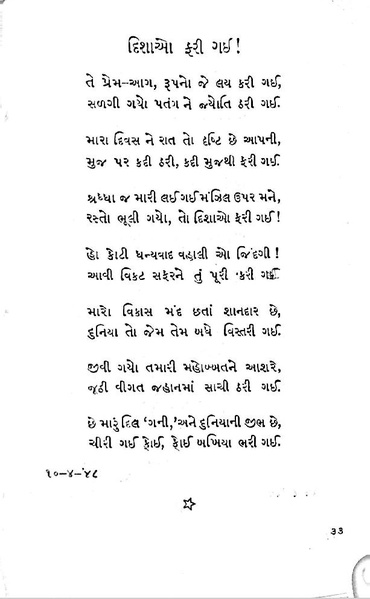 દિશાઓ ફરી ગઈ!
તે પ્રેમ-આગ, રૂપનો જે લય કરી ગઈ,
સળગી ગયો પતંગ ને જ્યોતિ ઠરી ગઈ.
મારા દિવસ ને રાત તો દૃષ્ટિ છે આપની,
મુજ પર કદી ઠરી, કદી મુજથી ફરી ગઈ.
શ્રધ્ધા જ મારી લઈ ગઈ મંઝિલ ઉપર મને,
રસ્તો ભૂલી ગયો, તો દિશાઓ ફરી ગઈ!
હો કોટી ધન્યવાદ વહાલી ઓ જિંદગી!
આવી વિકટ સફરને તું પૂરી કરી ગઈ.
મારો વિકાસ મંદ છતાં શાનદાર છે,
દુનિયા તો જેમ તેમ બધે વિસ્તરી ગઈ.
જીવી ગયો તમારી મહોબ્બતને આશરે,
જૂઠી વીગત જહાનમાં સાચી ઠરી ગઈ.
છે મારું દિલ ‘ગની,’ અને દુનિયાની જીભ છે,
ચીરી ગઈ કોઈ, કોઈ બખિયા ભરી ગઈ.
૧૦-૪-'૪૮
૩૩